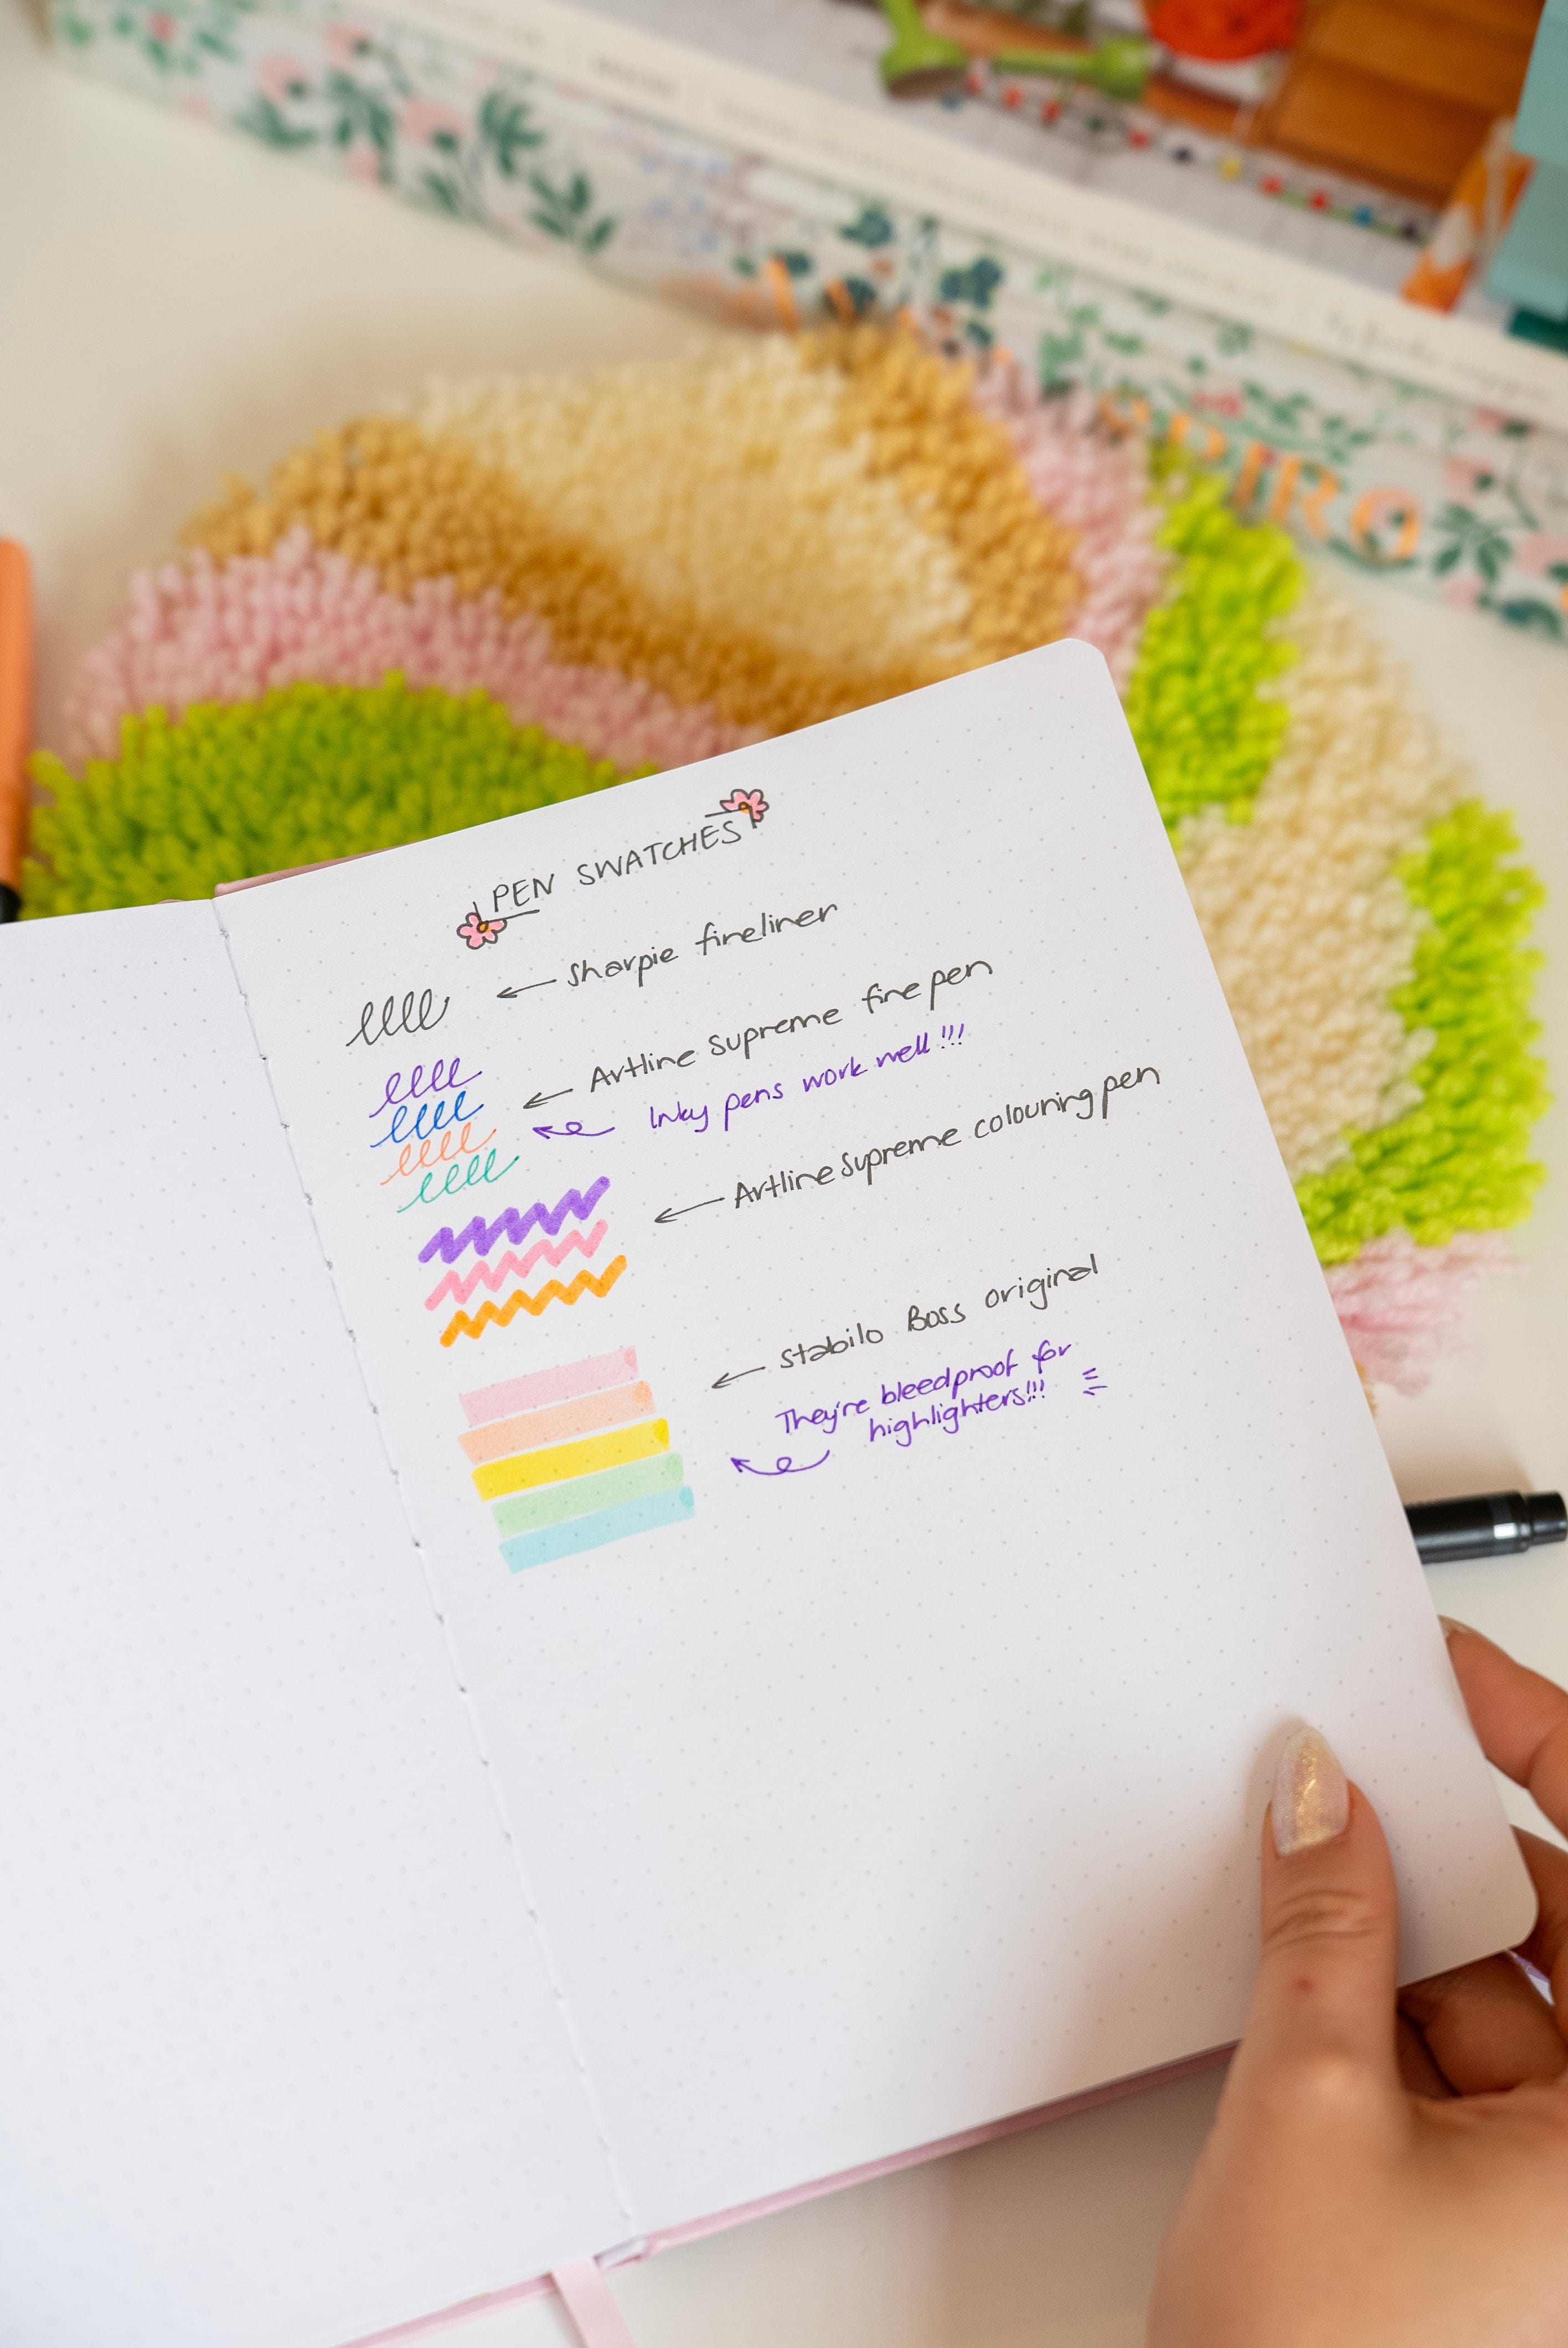 PEN SWATCHES
Sharpie fineliner
Artline Supreme fine pen
Inky pens work well!!!
Artline Supreme colouring pen
Stabilo Boss original
They're bleedproof for
highlighters!!!